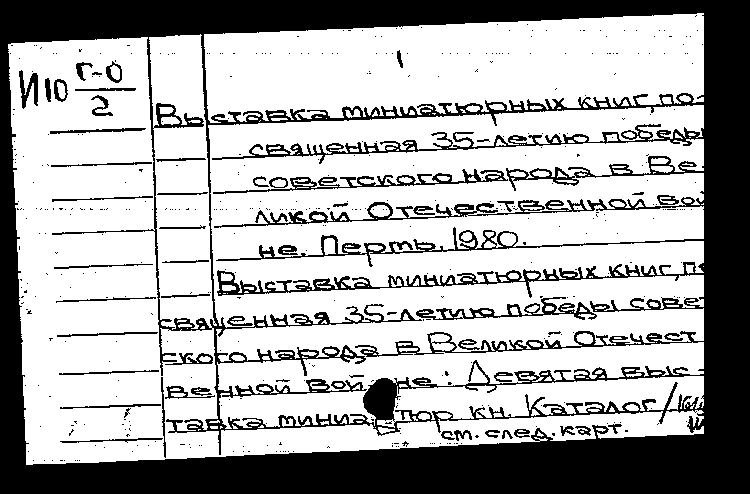 1
И10 г-0/2
Выставка миниатюрных книг, по-
священная 35-летию победы
советского народа в Ве-
ликой Отечественной вой
не. Пермь. 1980.
Выставка миниатюрных книг, по
священная 35-летию победы совет
ского народа в Великой Отечест
венной войне: Девятая выс-
тавка миниатюр кн. Каталог/
см. след. карт.